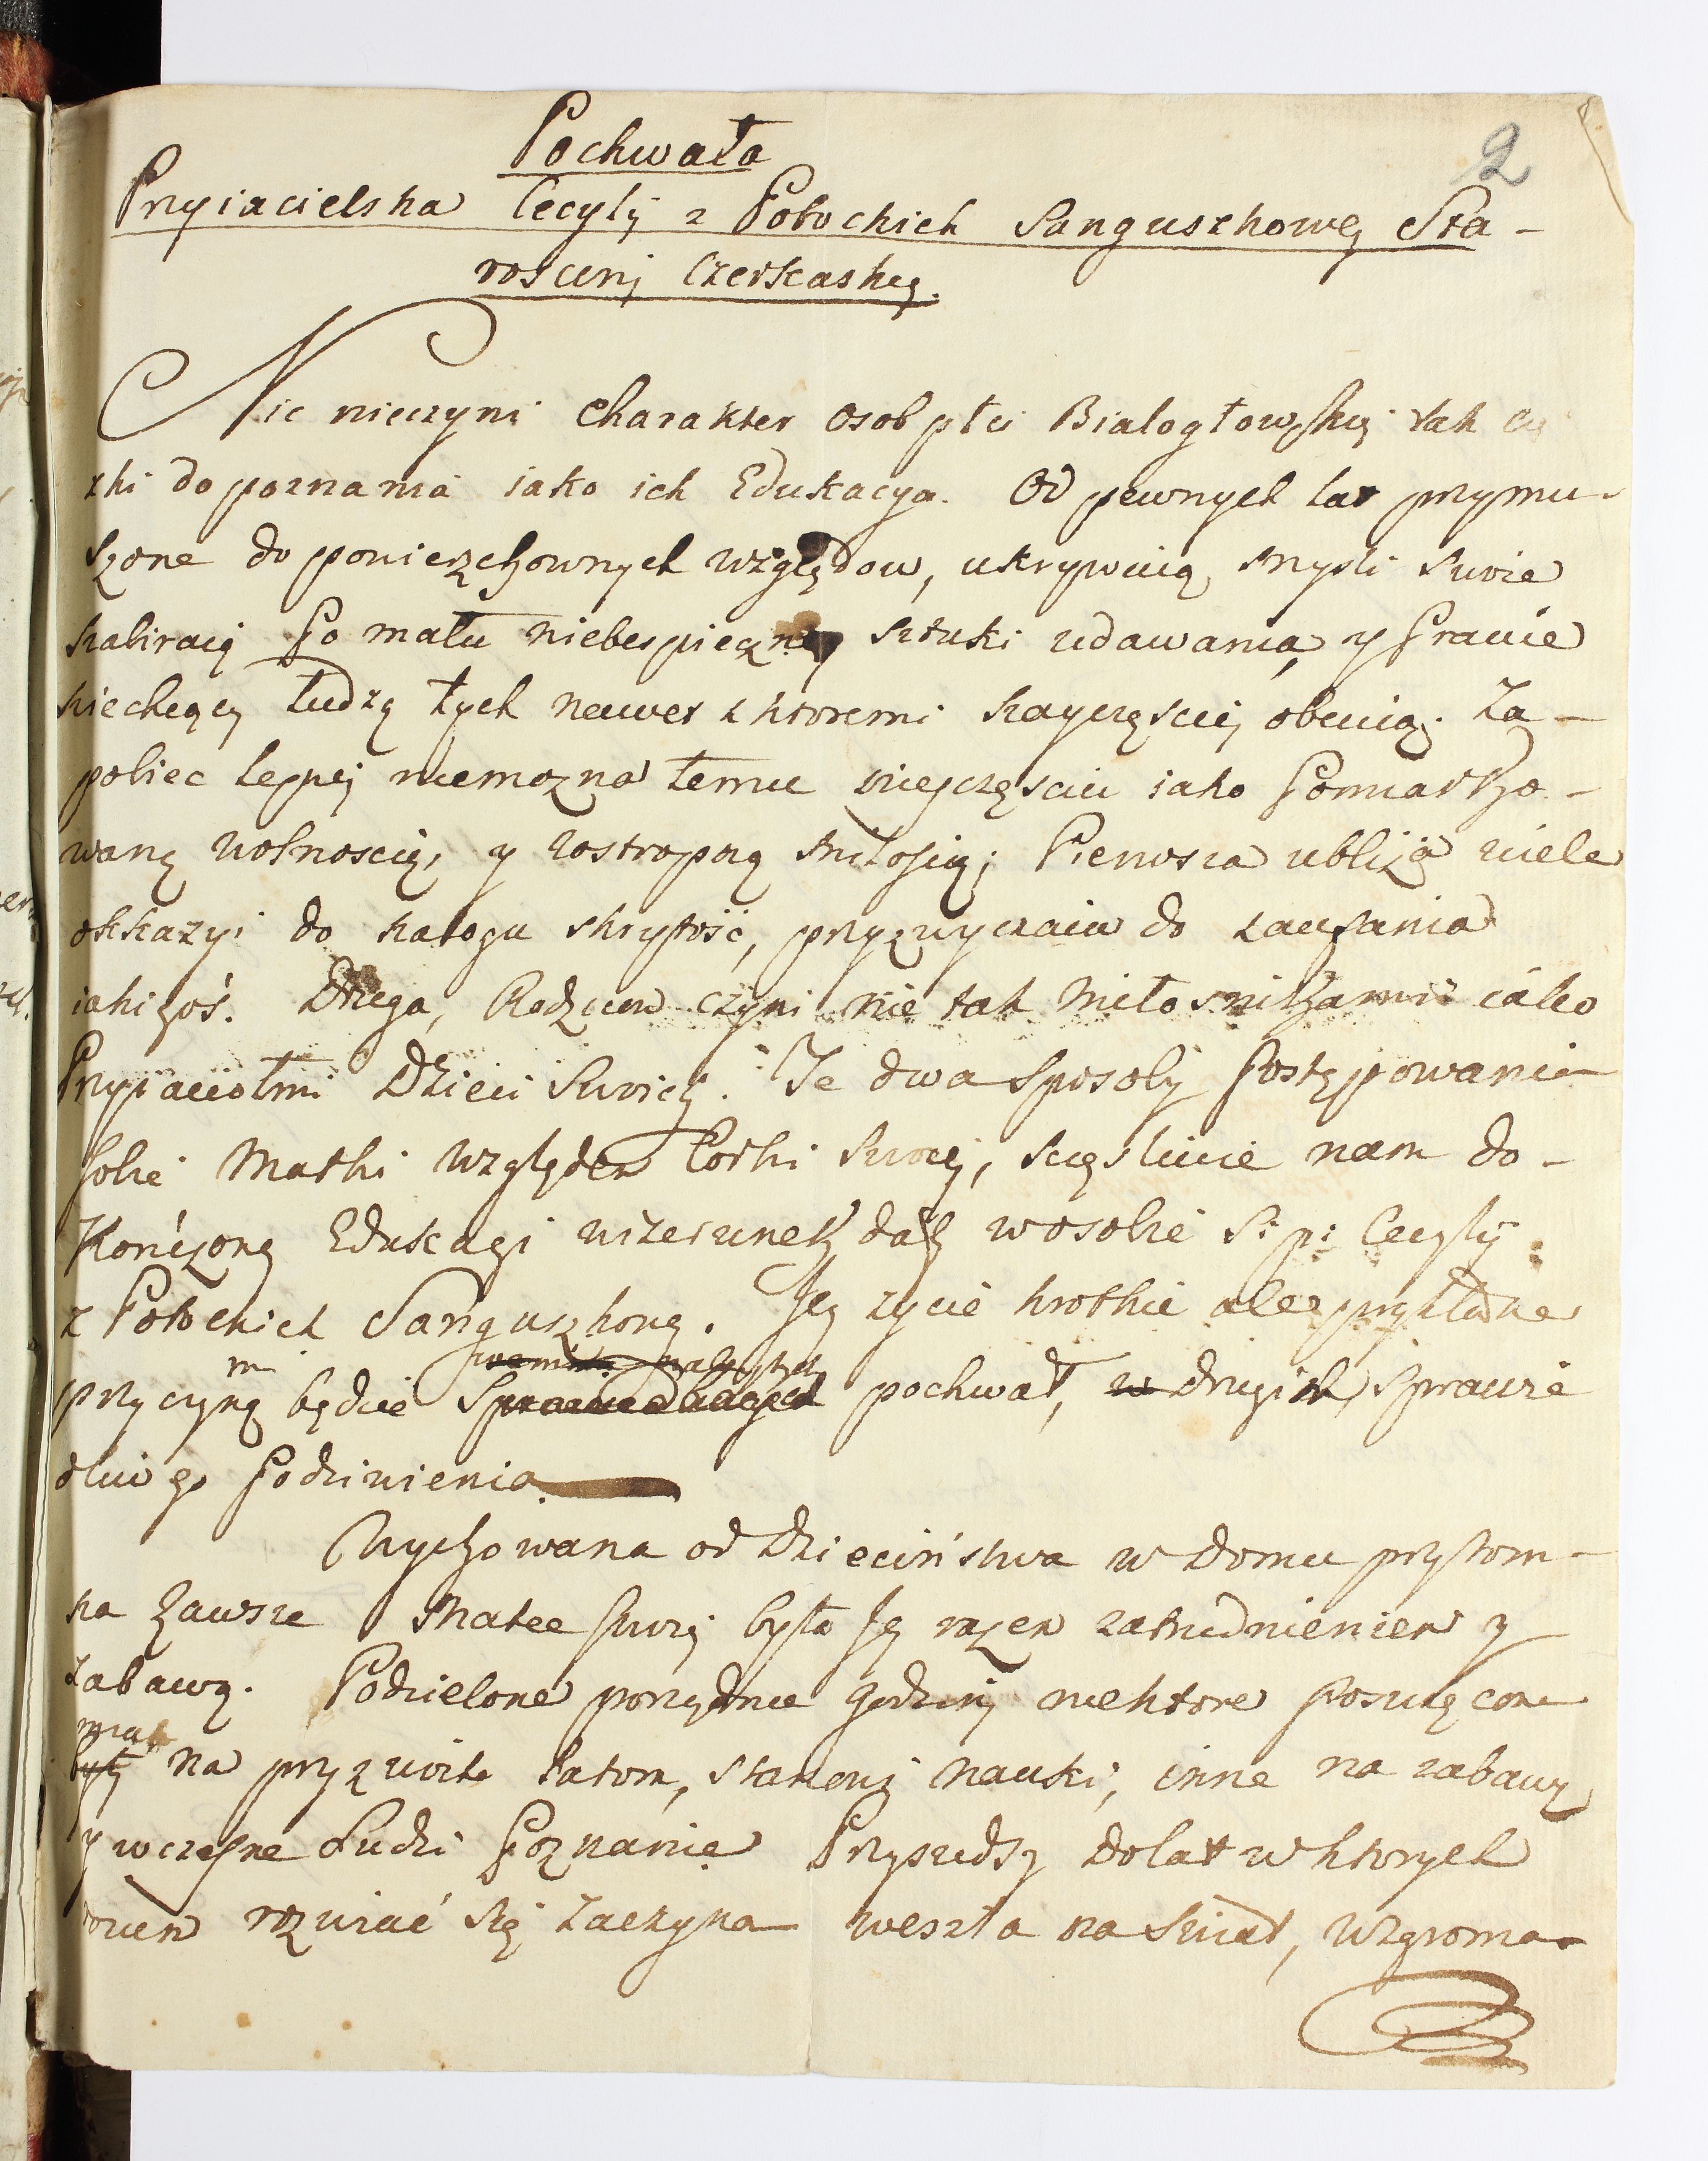 2
Pochwała
Przyiacielska Cecylij z Potockich Sanguszkowey Sta-
rosciny Czerkaskiey.
Nic nieczyni charakter osob płci Białogłowskiey tak cię
zki do poznania iako ich Edukacya. Od pewnych lat przymu-
szone do powierzchownych względow, ukrywaią mysli swoie
nabiraią po mału niebespieczney sztuki udawania, y prawie
niechcący łudzą tych nawet z ktoremi nayczęsciey obcuią. Za-
pobiec lepiey niemozna temu nieszczęsciu iako pomiarko-
waną wolnoscią, y rostropną miłoscią; Pierwsza ubliża wiele
okkazyi do nałogu skrytość, przyzwyczaia do zaufania
iakigoś. Druga, Rodzicow czyni nie tak miłosnikami iako
Przyiaciołmi Dzieci swoich. Te dwa sposoby postępowania
sobie Matki względem Corki swoiey, sczęsliwie nam do-
Kończoney Edukacyi wizerunek dały w osobie S: p: Cecylij
z Potockich Sanguszkowey. Jey zycie krotkie ale przykładne
m
przyczyną będzie pochwał, w drugich sprawie
dliwego podziwienia.
Wychowana od Dzieciństwa w domu przytom-
na zawsze Matce swoiey była Jey razem zatrudnieniem y
zabawą. Podzielone porządnie godziny niektore poswięcone
były na przyzwoite latom, stanowi nauki, inne na zabawy
y wczesne Ludzi poznanie Przyszedszy do lat w ktorych
rozum rozwiać się zaczyna weszła na swiat, wzgroma-